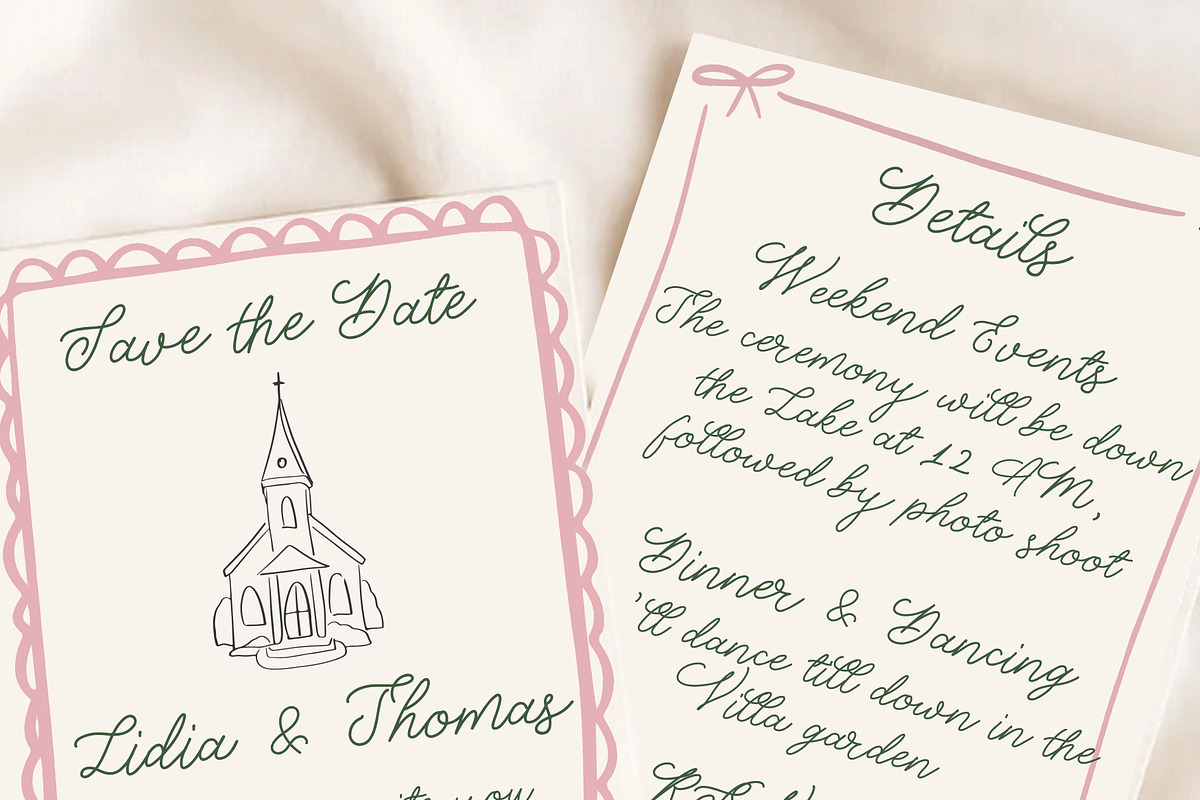 Save the Date
Lidia & Thomas
Details
Weekend Events
The ceremony will be down
the Lake at 12 AM,
followed by photo shoot
Dinner & Dancing
'll dance till down in the
Villa garden